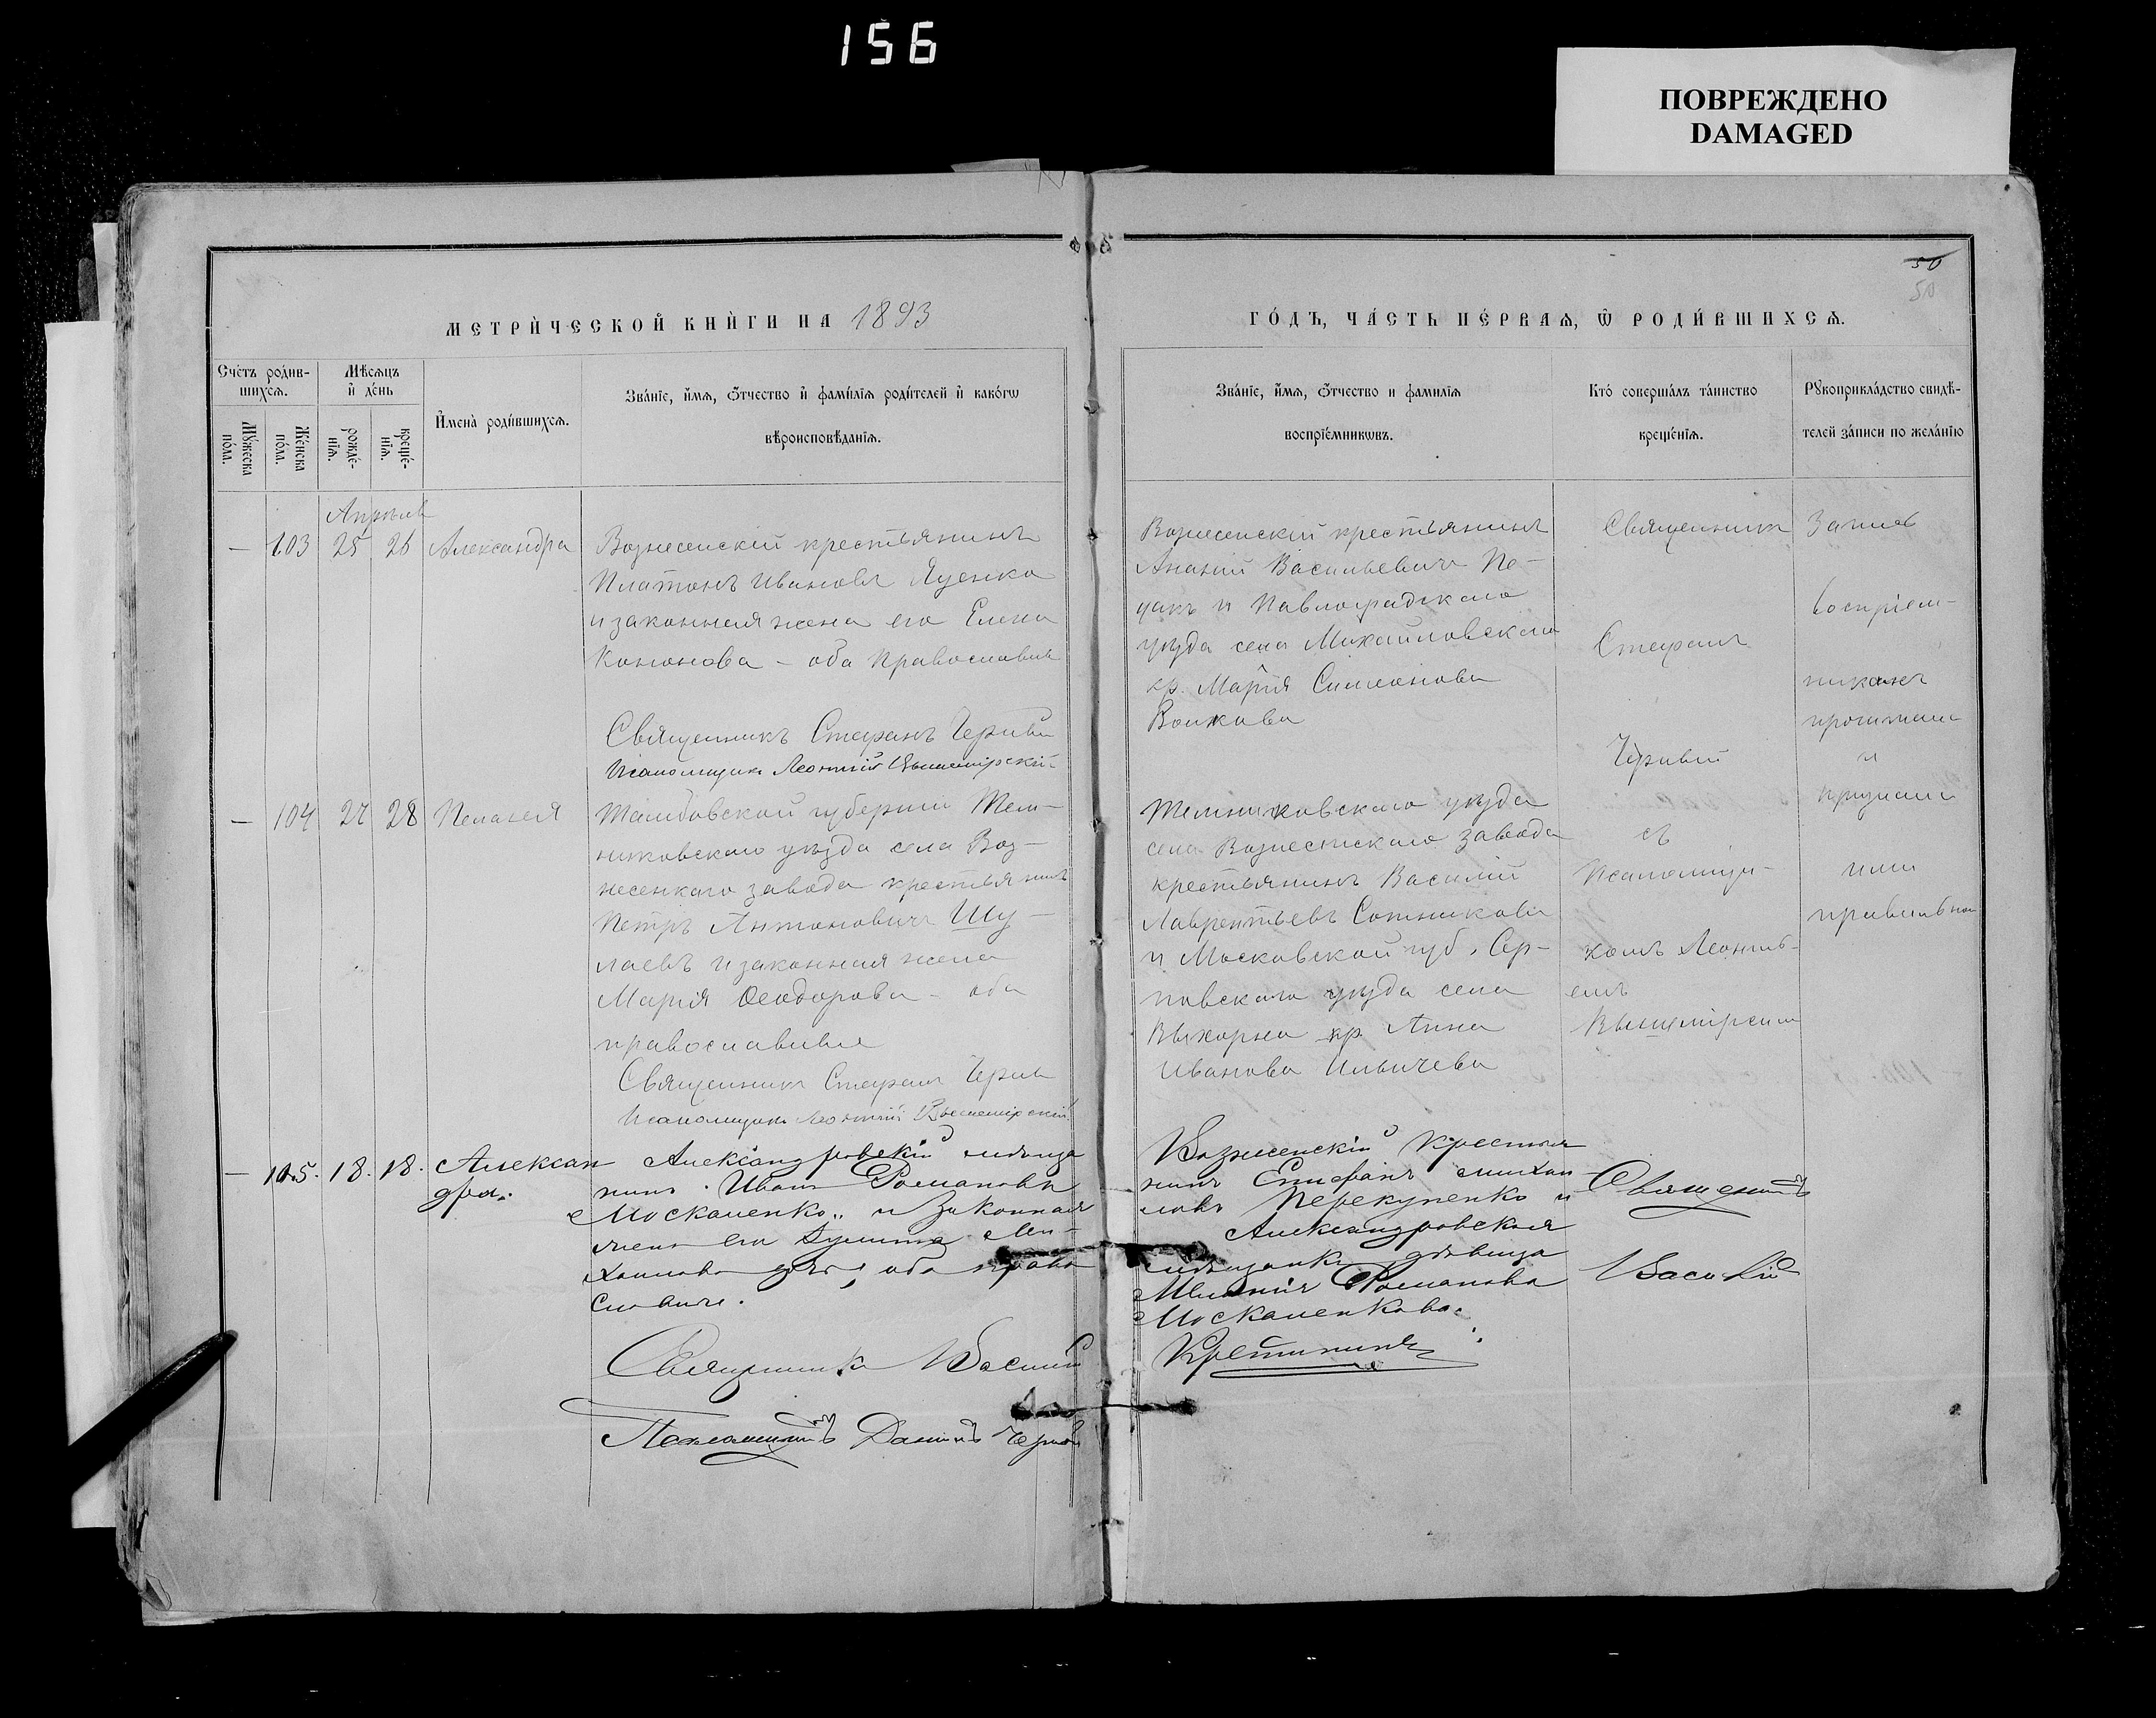 156
ПОВРЕЖДЕНО
DAMAGED
50
50
МЕТРИ́ЧЕСКОЙ КНИ́ГИ НА 1893
ГО́ДЪ, ЧА́СТЬ ПЕ́РВАѦ, Ѿ РОДИ́ВШИХСѦ.
Сче́тъ роди́в-
шихсѧ.
Мѣ́сѧцъ
и҆ де́нь
Мꙋ́жеска
по́ла.
Же́нска
по́ла.
рожде́-
нїѧ.
креще́-
нїѧ.
И҆мена̀ роди́вшихсѧ.
Зва́нїе, и҆́мѧ, ѻ҆́тчество и҆ фами́лїѧ роди́телей и҆ како́гѡ
вѣроисповѣ́данїѧ.
Зва́нїе, и҆́мѧ, ѻ҆́тчество и фамилїѧ
воспрїе́мникѡвъ.
Кто̀ соверша́лъ та́инство
креще́нїѧ.
Рꙋкоприкла́дство свидѣ́-
телей за́писи по жела́нїю
Апрѣль
— 103 25 26 Александра
Вознесенскій крестьянинъ
Платонъ Ивановъ Яценко
и законная жена его Елена
Кононова – оба православные
Священникъ Стефанъ
Псаломщикъ Леонтій Вышемірскій
Вознесенскій крестьянинъ
Ананій Васильевичъ Пе-
цакъ и Павлоградскаго
уѣзда села Михайловскаго
кр. Марія Симеонова
Волкова
Священникъ
Стефанъ
съ
Псаломщи-
комъ Леонть-
емъ
Вышемірскимъ
Запись
воспріем-
никамъ
прочитали
и
признали
правильною
— 104 27 28 Пелагея
Тамбовской губерніи Тем-
никовскаго уѣзда села Воз-
несенкаго завода крестьянинъ
Петръ Антоновичъ Шу-
лаевъ и законная жена
Марія Ѳеодорова – оба
православные
Священникъ Стефанъ
Псаломщикъ Леонтій Вышемірскій
Темниковскаго уѣзда
села Вознесенскаго завода
крестьянинъ Василій
Лаврентьевъ Сотниковъ
и Московской губ. Сер-
повскаго уѣзда села
кр. Анна
Иванова
— 105. 18. 18. Алексан
дра.
Александровскій мѣща
нинъ Иванъ Романовъ
Москаленко, и законная
жена его Ми-
хаилова оба право
славные.
Священникъ Василій
Псаломщикъ Даниилъ
Вознесенскій крестья
нинъ Епифанъ михаи
ловъ Перекупенко и
Александровская
мѣщанка дѣвица
Романова
Москаленкова.
Священникъ
Василій